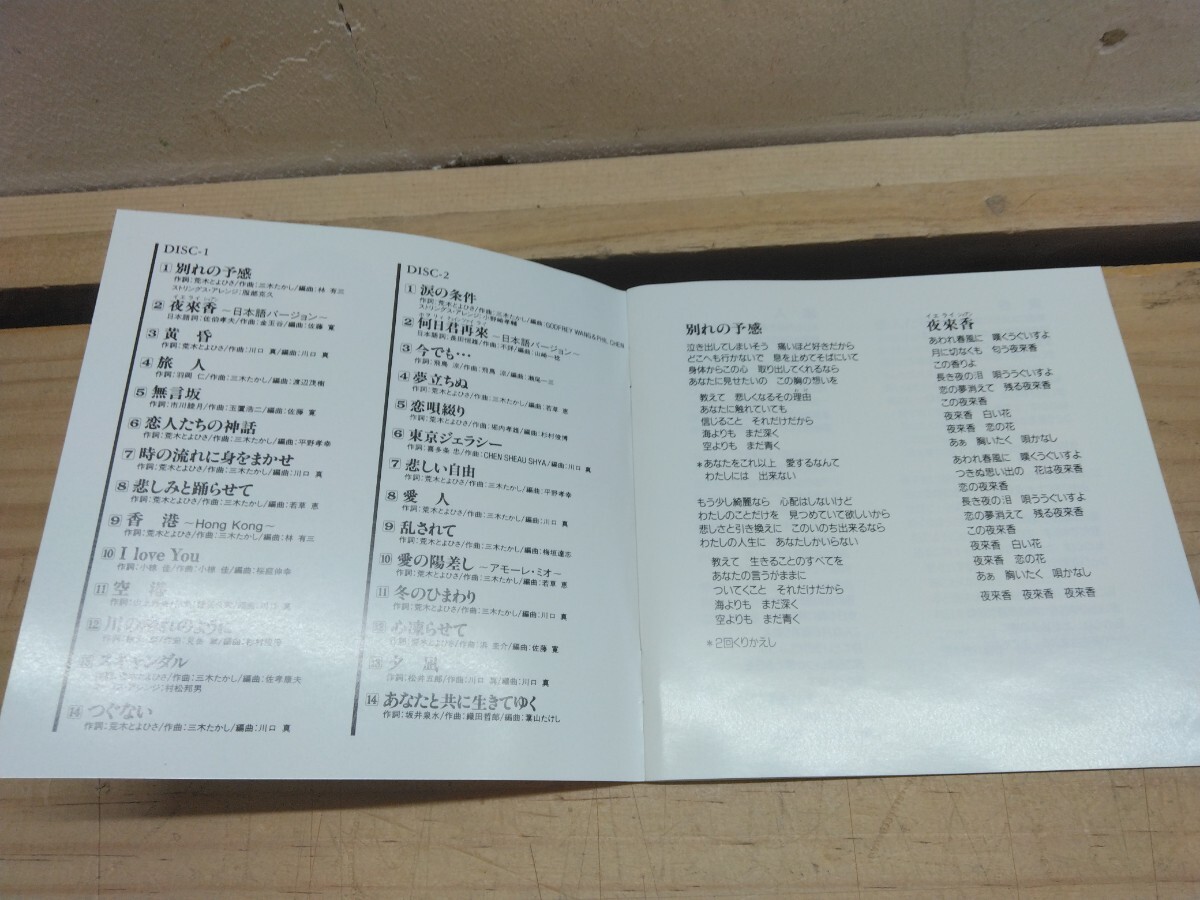 DISC-1
1 別れの予感
作詞:荒木とよひさ/作曲:三木たかし/編曲:林 有三
ストリングス・アレンジ:服部克久
イエライシャン
2 夜來香 〜日本語バージョン〜
日本語詞:佐伯孝夫/作曲:金玉谷/編曲:佐藤 寛
3 黄 昏
作詞:荒木とよひさ/作曲:川口 真/編曲:川口 真
4 旅 人
作詞:羽岡 仁/作曲:三木たかし/編曲:渡辺茂樹
5 無言坂
作詞:市川睦月/作曲:玉置浩二/編曲:佐藤 寛
6 恋人たちの神話
作詞:荒木とよひさ/作曲:三木たかし/編曲:平野孝幸
7 時の流れに身をまかせ
作詞:荒木とよひさ/作曲:三木たかし/編曲:川口 真
8 悲しみと踊らせて
作詞:荒木とよひさ/作曲:三木たかし/編曲:若草 恵
9 香 港 〜Hong Kong〜
作詞:荒木とよひさ/作曲:三木たかし/編曲:林 有三
10 I love You
作詞:小椋 佳/作曲:小椋 佳/編曲:桜庭伸幸
11 空 港
12 川の流れのように
13 スキャンダル
作曲:三木たかし/編曲:佐孝康夫
アレンジ:村松邦男
14 つぐない
作詞:荒木とよひさ/作曲:三木たかし/編曲:川口 真
DISC-2
1 涙の条件
作詞:荒木とよひさ/作曲:三木たかし/編曲:GODFREY WANG & PHIL CHEN
ストリングス・アレンジ:小野崎孝輔
2 何日君再来 〜日本語バージョン〜
日本語詞:長田恒雄/作曲:不詳/編曲:山崎一稔
3 今でも…
作詞:飛鳥 涼/作曲:飛鳥 涼/編曲:瀬尾一三
4 夢立ちぬ
作詞:荒木とよひさ/作曲:三木たかし/編曲:若草 恵
5 恋唄綴り
作詞:荒木とよひさ/作曲:堀内孝雄/編曲:杉村俊博
6 東京ジェラシー
作詞:喜多条 忠/作曲:CHEN SHEAU SHYA/編曲:川口 真
7 悲しい自由
作詞:荒木とよひさ/作曲:三木たかし/編曲:平野孝幸
8 愛 人
作詞:荒木とよひさ/作曲:三木たかし/編曲:川口 真
9 乱されて
作詞:荒木とよひさ/作曲:三木たかし/編曲:梅垣達志
10 愛の陽差し 〜アモーレ・ミオ〜
作詞:荒木とよひさ/作曲:三木たかし/編曲:若草 恵
11 冬のひまわり
作詞:荒木とよひさ/作曲:三木たかし/編曲:川口 真
12 心凍らせて
荒木とよひさ/作曲:浜 圭介/編曲:佐藤 寛
13 夕 凪
作詞:松井五郎/作曲:川口 真/編曲:川口 真
14 あなたと共に生きてゆく
作詞:坂井泉水/作曲:織田哲郎/編曲:葉山たけし
別れの予感
泣き出してしまいそう 痛いほど好きだから
どこへも行かないで 息を止めてそばにいて
身体からこの心 取り出してくれるなら
あなたに見せたいの この胸の想いを
教えて 悲しくなるその理由
あなたに触れていても
信じること それだけだから
海よりも まだ深く
空よりも まだ青く
*あなたをこれ以上 愛するなんて
わたしには 出来ない
もう少し綺麗なら 心配はしないけど
わたしのことだけを 見つめていて欲しいから
悲しさと引き換えに このいのち出来るなら
わたしの人生に あなたしかいらない
教えて 生きることのすべてを
あなたの言うがままに
ついてくこと それだけだから
海よりも まだ深く
空よりも まだ青く
*2回くりかえし
イエライシャン
夜來香
あわれ春風に 嘆くうぐいすよ
月に切なくも 匂う夜来香
この香りよ
長き夜の泪 唄ううぐいすよ
恋の夢消えて 残る夜来香
この夜来香
夜来香 白い花
夜来香 恋の花
あぁ 胸いたく 唄かなし
あわれ春風に 嘆くうぐいすよ
つきぬ思い出の 花は夜来香
恋の夜来香
長き夜の泪 唄ううぐいすよ
恋の夢消えて 残る夜来香
この夜来香
夜来香 白い花
夜来香 恋の花
あぁ 胸いたく 唄かなし
夜来香 夜来香 夜来香